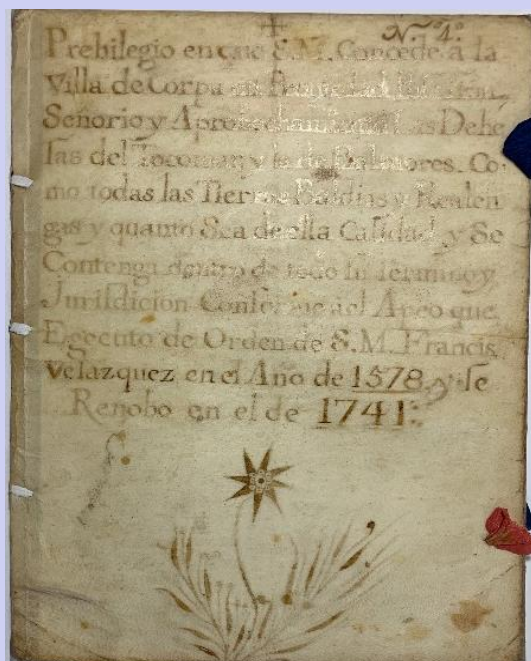 N.º 4.º
Prebilegio en que S.M. Concede a la
Villa de Corpa en
Señorio y Aprobechamiento las Dehe
sas del Tocoman y la de Co.
mo todas las Tierras Baldias y Realen
gas y quanto Sea de ella Calidad, y Se
Contenga dentro de todo su Termino y
Jurisdicion Conforme del Apeo que
Egecuto de Orden de S.M. Francis.
Velazquez en el Año de 1578. y se
Renobo en el de 1741: